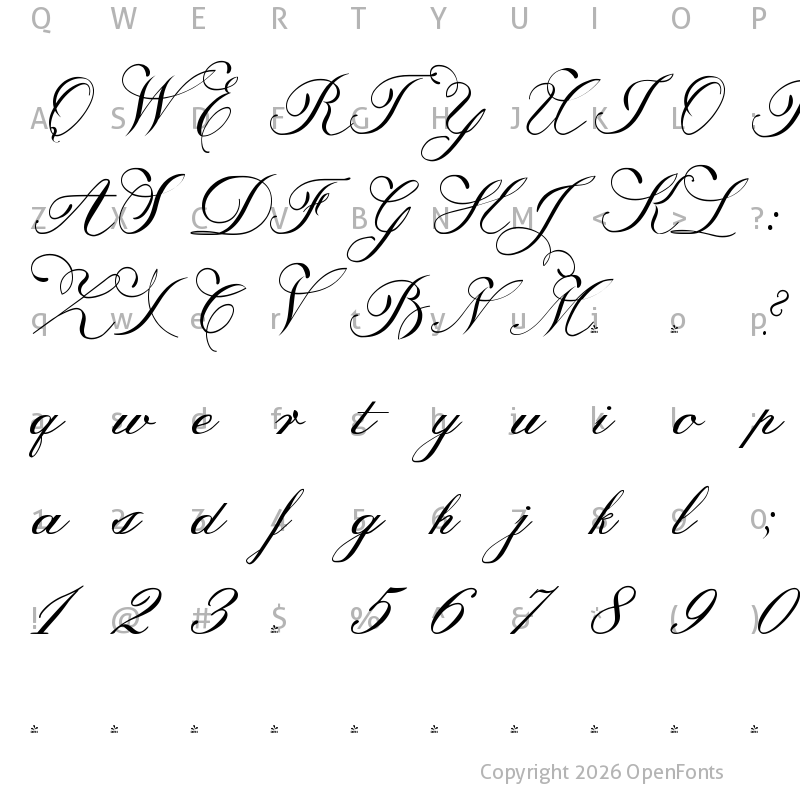 Q W E R T Y U I O P
Q W E R T Y U I O P
A S D F G H J K L :
A S D F G H J K L :
Z X C V B N M < > ?
Z X C V B N M ?
q w e r t y u i o p
q w e r t y u i o p
a s d f g h j k l ;
a s d f g h j k l ;
1 2 3 4 5 6 7 8 9 0
1 2 3 5 6 7 8 9 0
! @ # $ % ^ & * ( )
Copyright 2026 OpenFonts